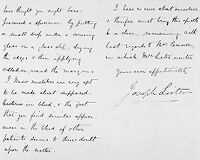 have thought you might have
procured a specimen by putting
a small drop under a covering
glass on a glass slip, drying
the edges & then applying
collodion round the margin.
I know mistakes are very apt
to be made about supposed
bacteria in blood, & the fact
that you find similar appear-
ances in the blood of other
patients seems to throw doubt
upon the matter.
I have to race about elsewhere, &
therefore must bring this epistle
to a close, remaining with
kind regards to Mrs Cameron,
in which Mrs Lister unites
Yours very affectionately
Joseph Lister